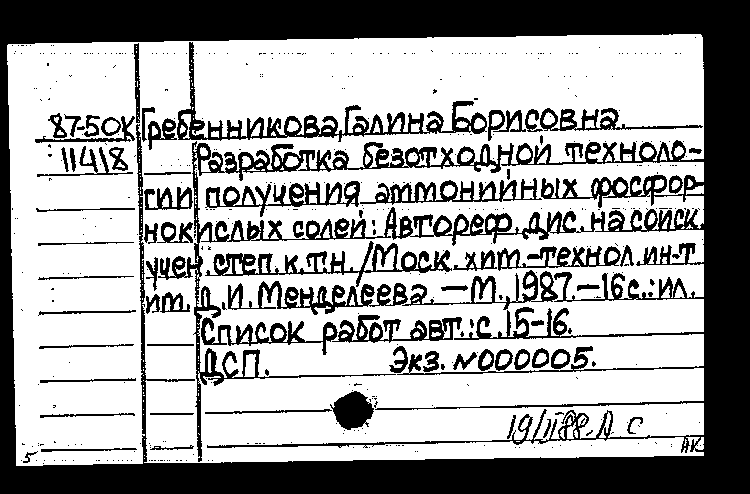 87-50К Гребенникова, Галина Борисовна.
11418 Разработка безотходной техноло-
гии получения аммонийных фосфор-
нокислых солей: Автореф. дис. на соиск.
учен. степ. к.т.н. /Моск. хим.-технол. ин-т
им. Д.И. Менделеева. — М., 1987. — 16 с.: ил.
Список работ авт.: с. 15-16.
ДСП. Экз. №000005.
19/II88.
5 АК